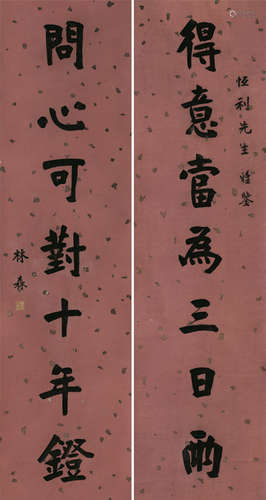 恒利先生雅鉴
得意當為三日雨
問心可對十年鐙
林森